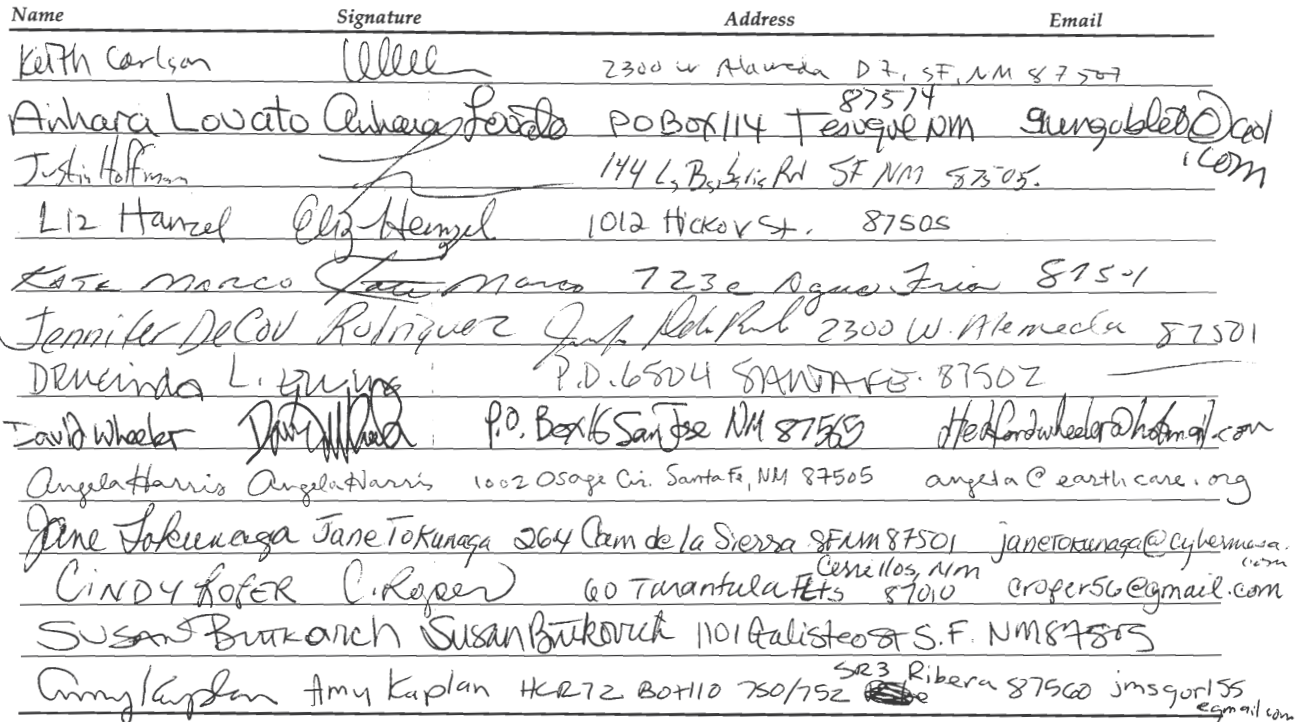 Name Signature Address Email
Keith Carlson 2300 W Alameda D7, SF, NM 87507
87574
Ainhara Lovato Ainhara Lovato PO Box 114 Tesuque NM @aol
.com
Justin Hoffman 144 Rd SF NM 87505.
Liz Hanzel Eliz Henzel 1012 Hickox St. 87505
KATE MARCO Kate Marco 723 Agua Fria 87501
Jennifer DeCov Rodriquez 2300 W. Alemeda 87501
L. P.O. 6504 SANTA FE. 87502
David Wheeler P.O. Box 16 San Jose NM 87565 Hedfordwheeler@hotmail.com
Angela Harris Angela Harris 1002 Osage Cir. Santa Fe, NM 87505 angela@earthcare.org
Jane Tokunaga Jane Tokunaga 264 Cam de la Sierra SF NM 87501 janetokunaga@cybermesa.
com
Cerrillos, NM
CINDY ROPER C. Roper 60 Tarantula 87010 croper56@gmail.com
SUSAN Susan 1101 Galisteo St S.F. NM 87505
SR3 Ribera
Amy Kaplan Amy Kaplan HCR72 Box 110 750/752 87560 jmsgurl55
@gmail.com